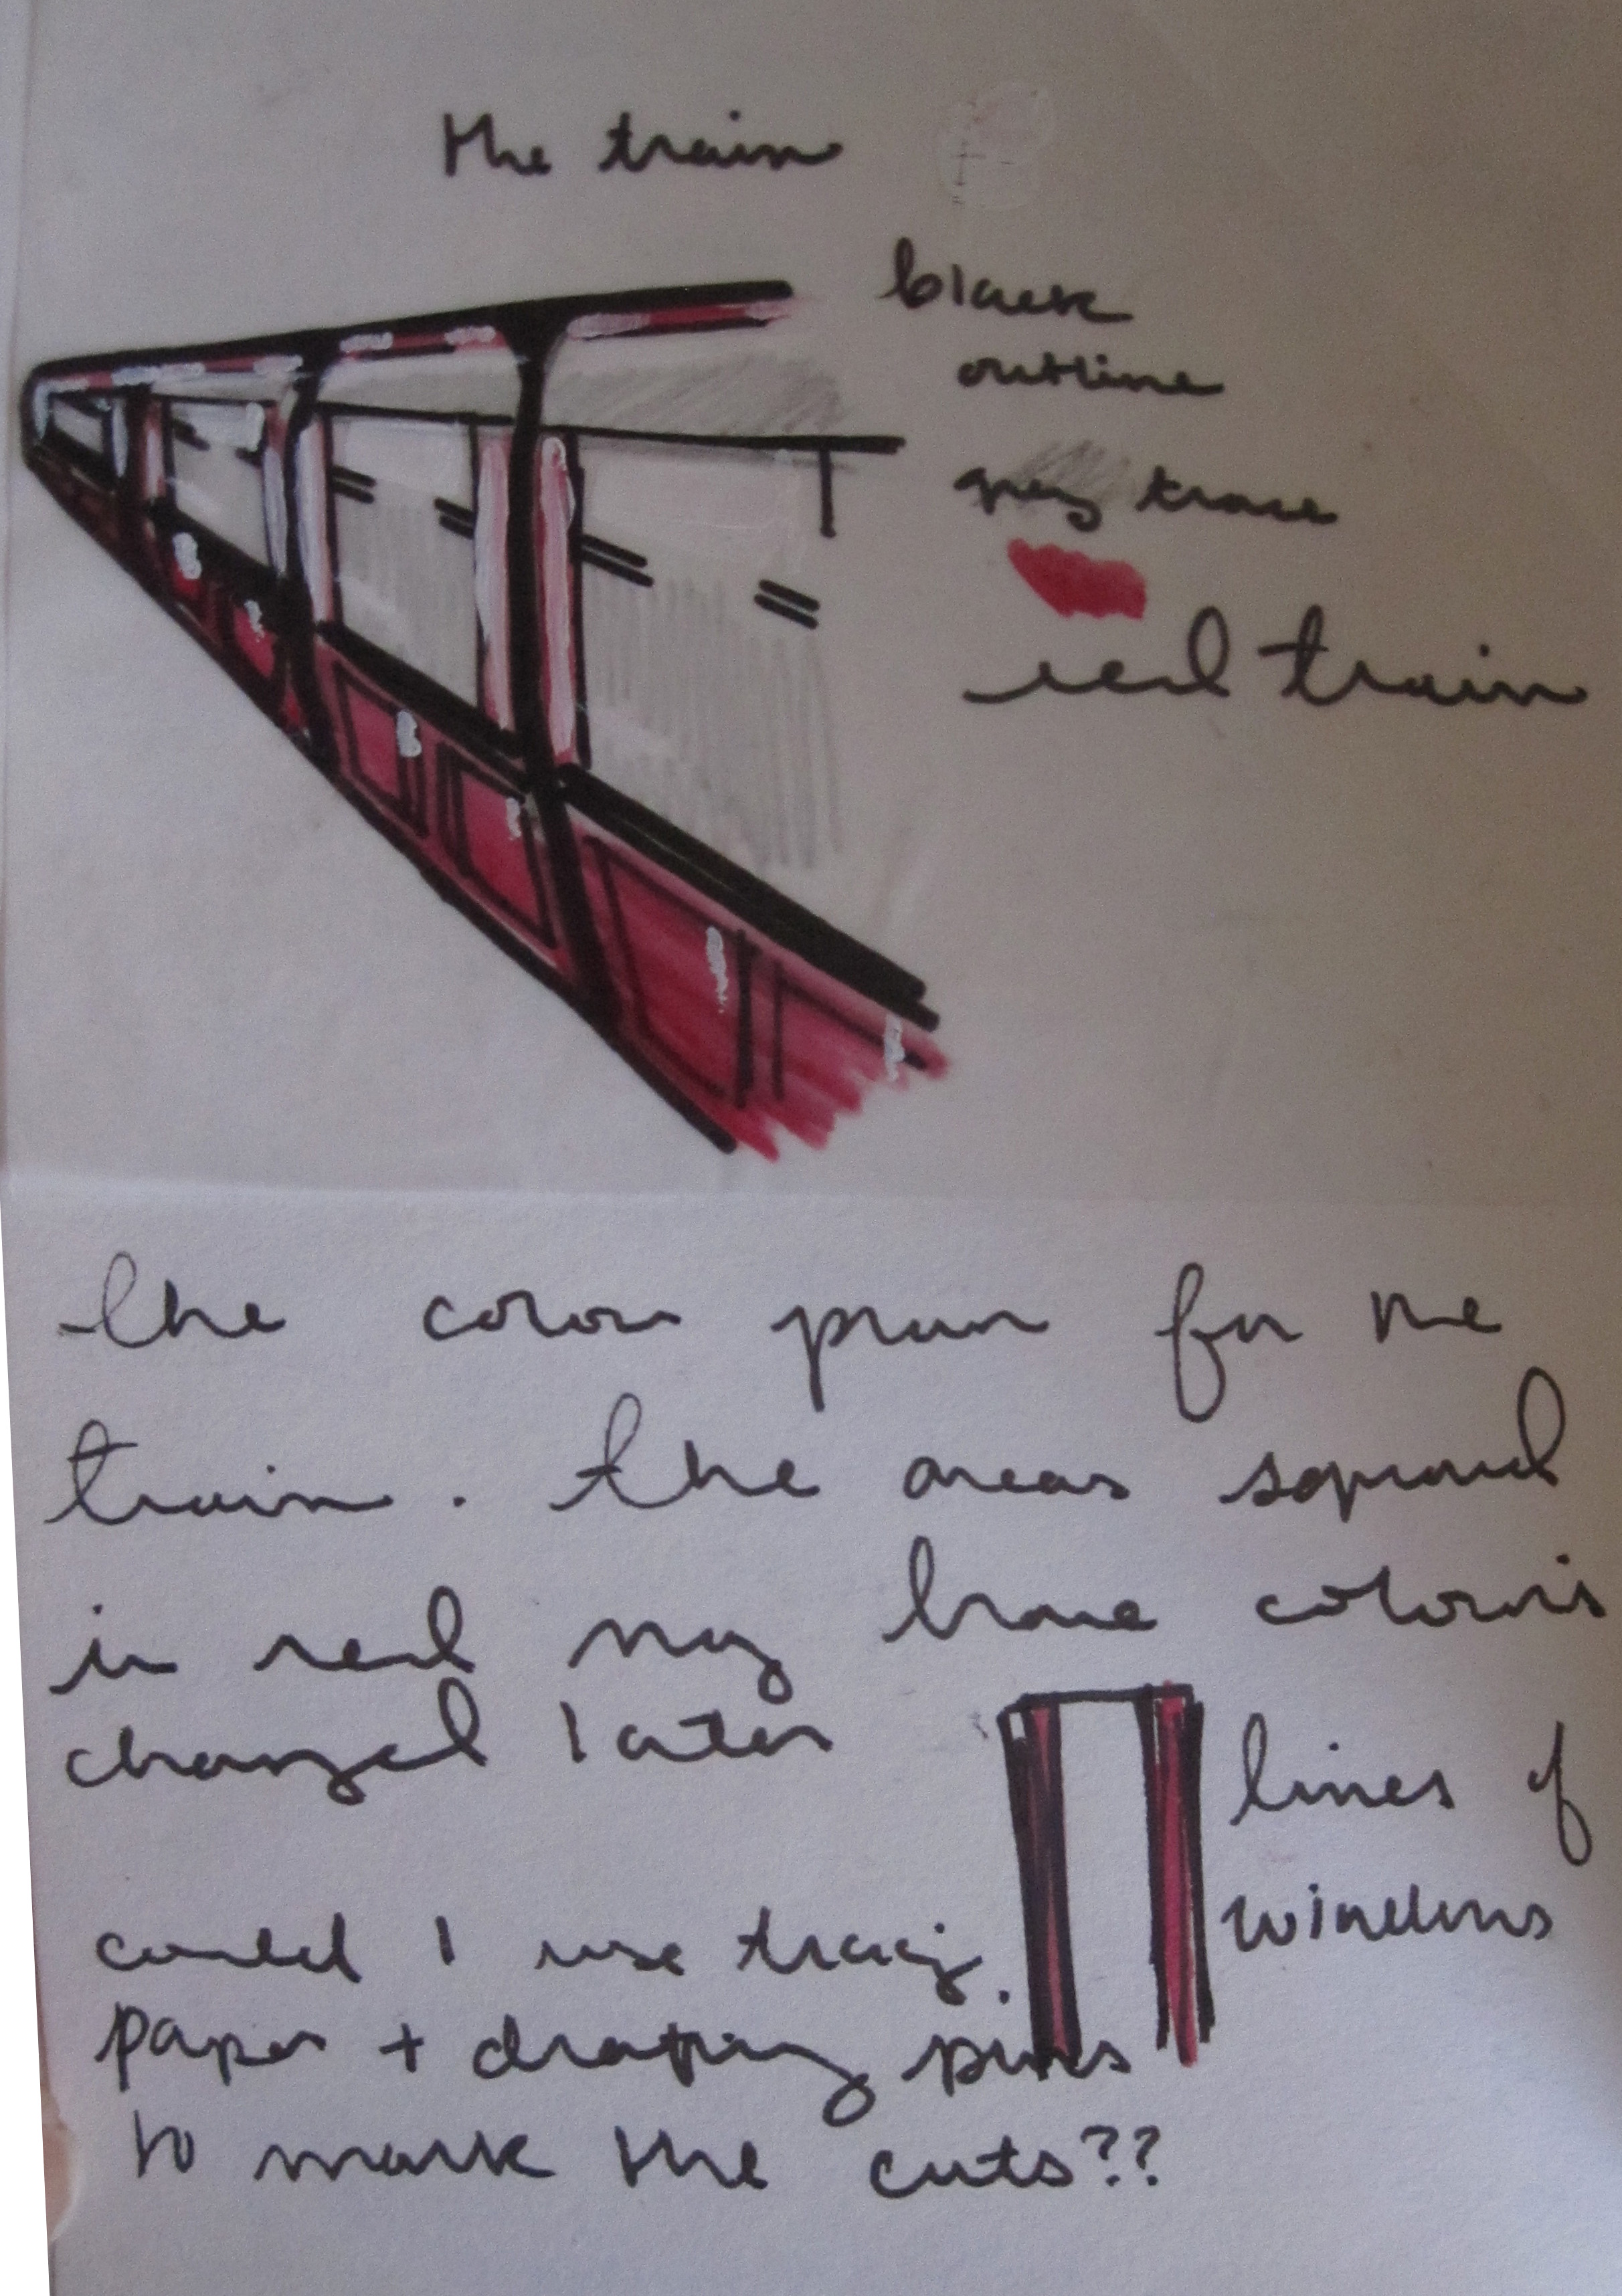 the train
black
outline
grey trace
red train
the colour plan for the
train. the areas squared
in red may have colours
changed later
lines of
windows
could I use tracing
paper + drafting pins
to mark the cuts??